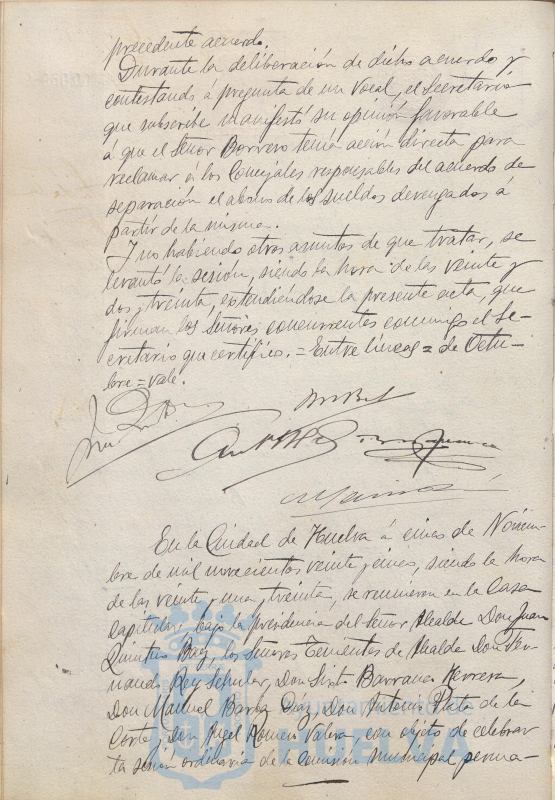 precedente acuerdo.
Durante la deliberación de dicho acuerdo y
contestando á pregunta de un vocal, el Secretario
que subscribe manifestó su opinión favorable
á que el Señor Borrero tenía acción directa para
reclamar á los Concejales responsables del acuerdo de
separación el abono de los sueldos devengados á
partir de la misma.
Y no habiendo otros asuntos de que tratar, se
levantó la sesión, siendo la hora de las veinte y
dos y treinta, extendiéndose la presente acta, que
firman los Señores concurrentes conmigo el Se-
cretario que certifico. = Entre lineas = de Octu-
bre = vale.
En la Ciudad de Huelva á cinco de Noviem-
bre de mil novecientos veinte y cinco, siendo la hora
de las veinte y una y treinta, se reunieron en la Casa
Capitular, bajo la presidencia del Señor Alcalde Don Juan
Quintero Baez, los Señores Tenientes de Alcalde Don Fer-
nando Rey Don Sixto Barranco Herrera,
Don Manuel Barba Díaz, Don Antonio Plata de la
Corte, Don Angel Romero Valera con objeto de celebrar
la sesión ordinaria de la Comisión Municipal perma-
HUELVA